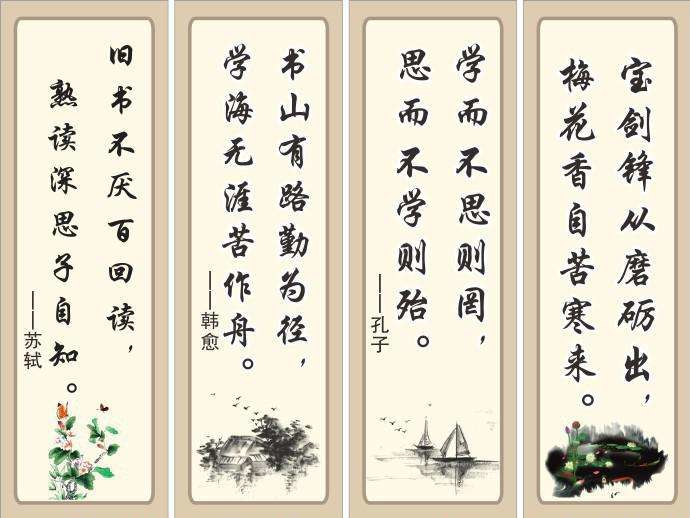 旧书不厌百回读，
熟读深思子自知。
——苏轼
书山有路勤为径，
学海无涯苦作舟。
——韩愈
学而不思则罔，
思而不学则殆。
——孔子
宝剑锋从磨砺出，
梅花香自苦寒来。